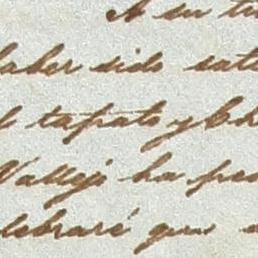 A su tu
haber sido sat
l tapato y Ch
Vallejo ha pe
lebraré que